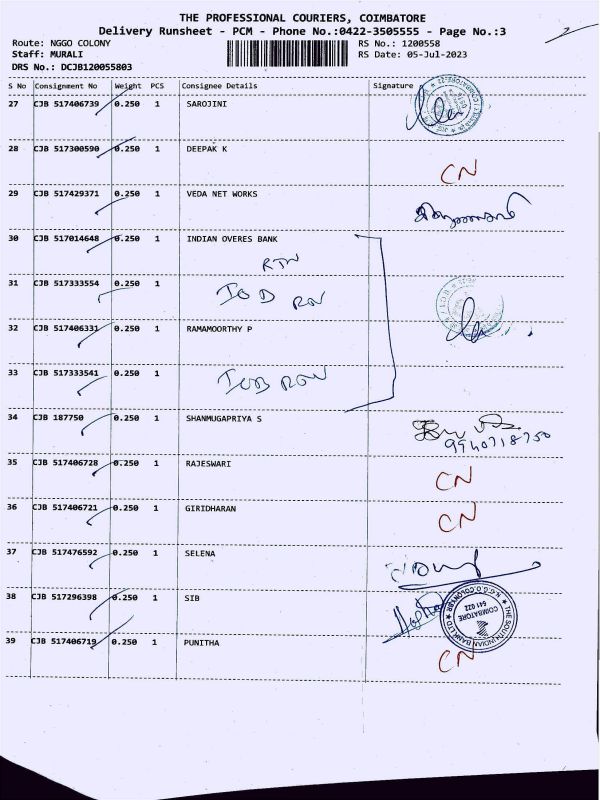 THE PROFESSIONAL COURIERS, COIMBATORE
Delivery Runsheet - PCM - Phone No.:0422-3505555 - Page No.:3
Route: NGGO COLONY RS No.: 1200558
Staff: MURALI RS Date: 05-Jul-2023
DRS No.: DCJB120055803
S No Consignment No Weight PCS Consignee Details Signature
27 CJB 517406739 0.250 1 SAROJINI
28 CJB 517300590 0.250 1 DEEPAK K
CN
29 CJB 517429371 0.250 1 VEDA NET WORKS
30 CJB 517014648 0.250 1 INDIAN OVERES BANK
31 CJB 517333554 0.250 1
IOB
32 CJB 517406331 0.250 1 RAMAMOORTHY P
33 CJB 517333541 0.250 1
IOB
34 CJB 187750 0.250 1 SHANMUGAPRIYA S
9940718750
35 CJB 517406728 0.250 1 RAJESWARI
CN
36 CJB 517406721 0.250 1 GIRIDHARAN
CN
37 CJB 517476592 0.250 1 SELENA
38 CJB 517296398 0.250 1 SIB
THE SOUTH INDIAN BANK LTD.
N.G.G.O COLONY BR
COIMBATORE
641 022
39 CJB 517406719 0.250 1 PUNITHA
CN